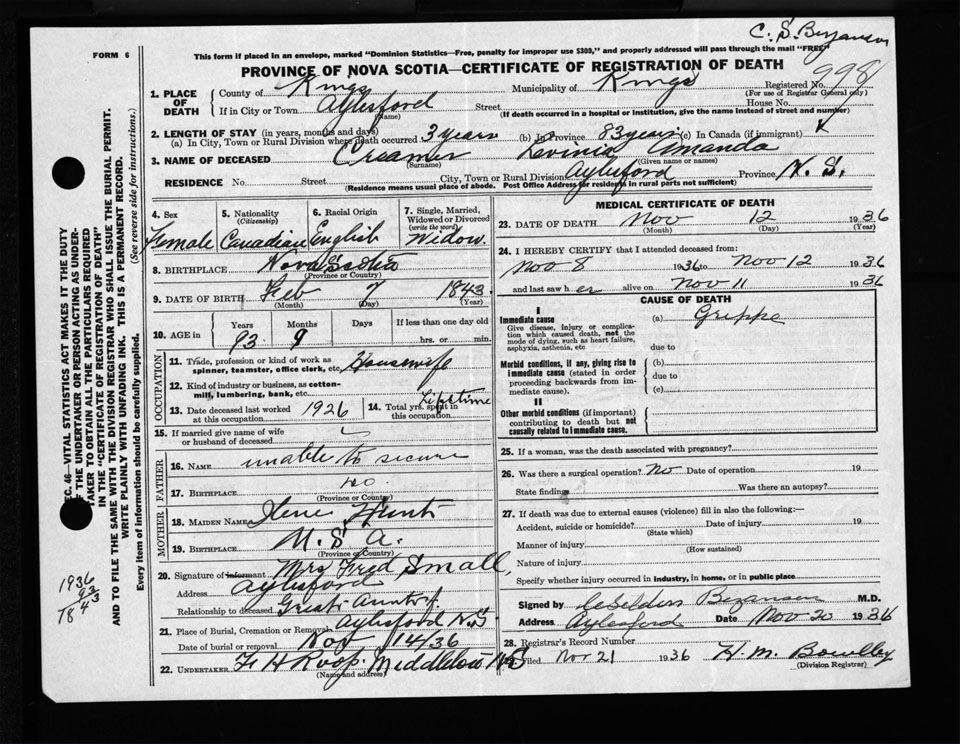 C. S. Bezanson
FORM 6
This form if placed in an envelope, marked "Dominion Statistics—Free, penalty for improper use $300," and properly addressed will pass through the mail "FREE"
PROVINCE OF NOVA SCOTIA—CERTIFICATE OF REGISTRATION OF DEATH
998
1. PLACE OF DEATH
County of Kings Municipality of Kings Registered No.
(For use of Registrar General only)
If in City or Town Aylesford Street House No.
(Name) (If death occurred in a hospital or institution, give the name instead of street and number)
2. LENGTH OF STAY (in years, months and days)
(a) In City, Town or Rural Division where death occurred 3 years (b) In Province 83 years (c) In Canada (if immigrant)
3. NAME OF DECEASED Creamer Levinia Amanda
(Surname) (Given name or names)
RESIDENCE No. Street City, Town or Rural Division Aylesford Province N. S.
(Residence means usual place of abode. Post Office Address for residents in rural parts not sufficient)
4. Sex Female
5. Nationality (Citizenship) Canadian
6. Racial Origin English
7. Single, Married, Widowed or Divorced (write the word) Widow.
8. BIRTHPLACE Nova Scotia
(Province or Country)
9. DATE OF BIRTH Feb 7 1843
(Month) (Day) (Year)
10. AGE in Years Months Days If less than one day old
93 9 hrs. or min.
OCCUPATION
11. Trade, profession or kind of work as spinner, teamster, office clerk, etc. Housewife
12. Kind of industry or business, as cotton-mill, lumbering, bank, etc.
13. Date deceased last worked at this occupation 1926
14. Total yrs. spent in this occupation Lifetime
15. If married give name of wife or husband of deceased
FATHER
16. NAME unable to secure
17. BIRTHPLACE do.
(Province or Country)
MOTHER
18. MAIDEN NAME Ilene Hunt
19. BIRTHPLACE U. S. A.
(Province or Country)
20. Signature of informant Mrs Fred Small,
Address Aylesford
Relationship to deceased Great Aunt of.
21. Place of Burial, Cremation or Removal Aylesford N.S
Date of burial or removal Nov 14/36
22. UNDERTAKER F H Roop. Middleton N S
(Name and address)
MEDICAL CERTIFICATE OF DEATH
23. DATE OF DEATH Nov 12 1936
(Month) (Day) (Year)
24. I HEREBY CERTIFY that I attended deceased from:
Nov 8 1936 to Nov 12 1936
and last saw her alive on Nov 11 1936
CAUSE OF DEATH
I
Immediate cause (a) Grippe
Give disease, injury or complication which caused death, not the mode of dying, such as heart failure, asphyxia, asthenia, etc
due to
Morbid conditions, if any, giving rise to immediate cause (stated in order proceeding backwards from immediate cause).
(b)
due to
(c)
II
Other morbid conditions (if important) contributing to death but not causally related to immediate cause.
25. If a woman, was the death associated with pregnancy?
26. Was there a surgical operation? No Date of operation 19
State findings Was there an autopsy?
27. If death was due to external causes (violence) fill in also the following:—
Accident, suicide or homicide? Date of injury 19
(State which)
Manner of injury
(How sustained)
Nature of injury
Specify whether injury occurred in industry, in home, or in public place
Signed by Bezanson M.D.
Address Aylesford Date Nov 20 1936
28. Registrar's Record Number
Filed Nov 21 1936 H. M.
(Division Registrar)
SEC. 46—VITAL STATISTICS ACT MAKES IT THE DUTY
OF THE UNDERTAKER OR PERSON ACTING AS UNDER-
TAKER TO OBTAIN ALL THE PARTICULARS REQUIRED
IN THE "CERTIFICATE OF REGISTRATION OF DEATH"
AND TO FILE THE SAME WITH THE DIVISION REGISTRAR WHO SHALL ISSUE THE BURIAL PERMIT.
WRITE PLAINLY WITH UNFADING INK. THIS IS A PERMANENT RECORD.
Every item of information should be carefully supplied. (See reverse side for instructions.)
1936
93
1843